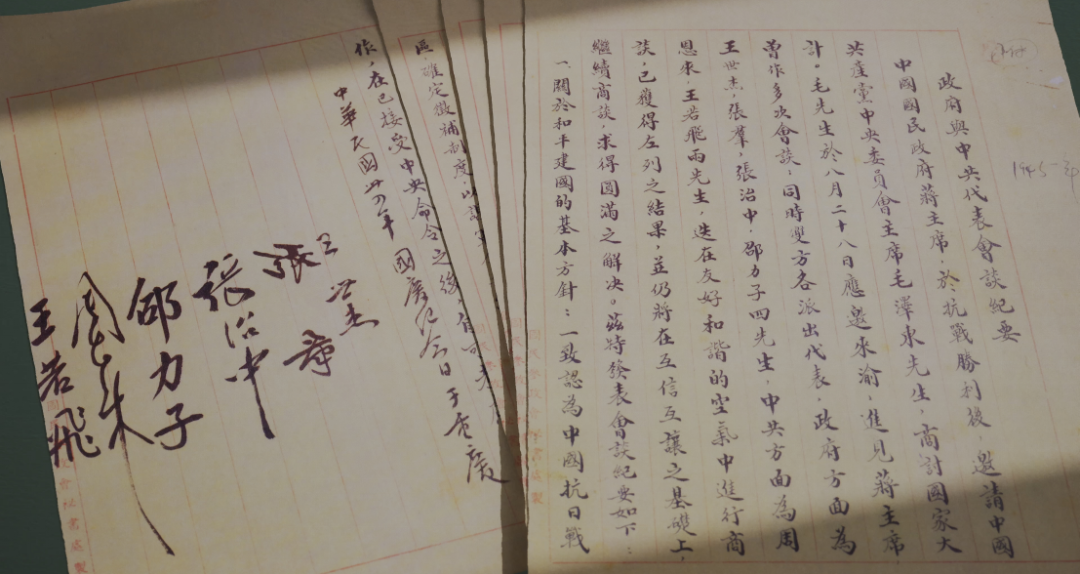 政府與中共代表會談紀要
中國國民政府蔣主席，於抗戰勝利後，邀請中國
共產黨中央委員會主席毛澤東先生，商討國家大
計。毛先生於八月二十八日應邀來渝，進見蔣主席
曾作多次會談，同時雙方各派出代表，政府方面為
王世杰，張羣，張治中，邵力子四先生，中共方面為周
恩來，王若飛兩先生，迭在友好和諧的空氣中進行商
談，已獲得左列之結果，並仍將在互信互讓之基礎上，
繼續商談，求得圓滿之解決。茲特發表會談紀要如下：
一關於和平建國的基本方針：一致認為中國抗日戰
1945
區，確定徵補制度，以
作，在已接受中央命令之後，自可考
中華民國卅四年國慶紀念日于重慶
王世杰
張羣
張治中
邵力子
周恩來
王若飛
會秘書處製